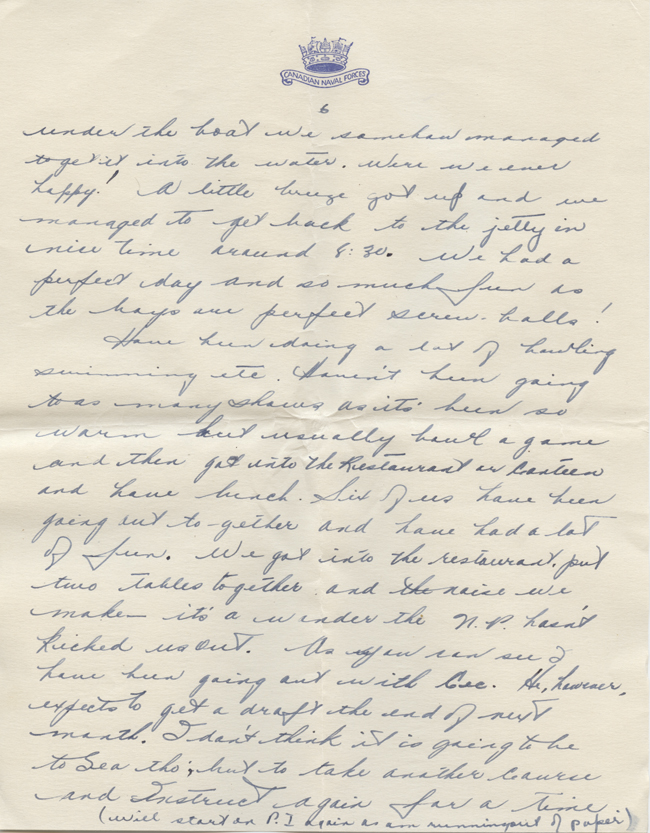 CANADIAN NAVAL FORCES
6
under the boat we somehow managed
to get it into the water. Were we ever
happy! A little breeze got up and we
managed to get back to the jetty in
nice time around 8:30. We had a
perfect day and so much fun as
the boys are perfect screw-balls!
Have been doing a lot of bowling
swimming etc. Haven't been going
to as many shows as it's been so
warm but usually bowl a game
and then go into the Restaurant or Canteen
and have lunch. Six of us have been
going out to-gether and have had a lot
of fun. We got into the restaurant, put
two tables together and the noise we
make - it's a wonder the N.P. hasn't
kicked us out. As you can see I
have been going out with Cec. He, however,
expects to get a draft the end of next
month. I don't think it is going to be
to Sea tho', but to take another Course
and Instruct again for a time
(will start on P. I again as am running out of paper)